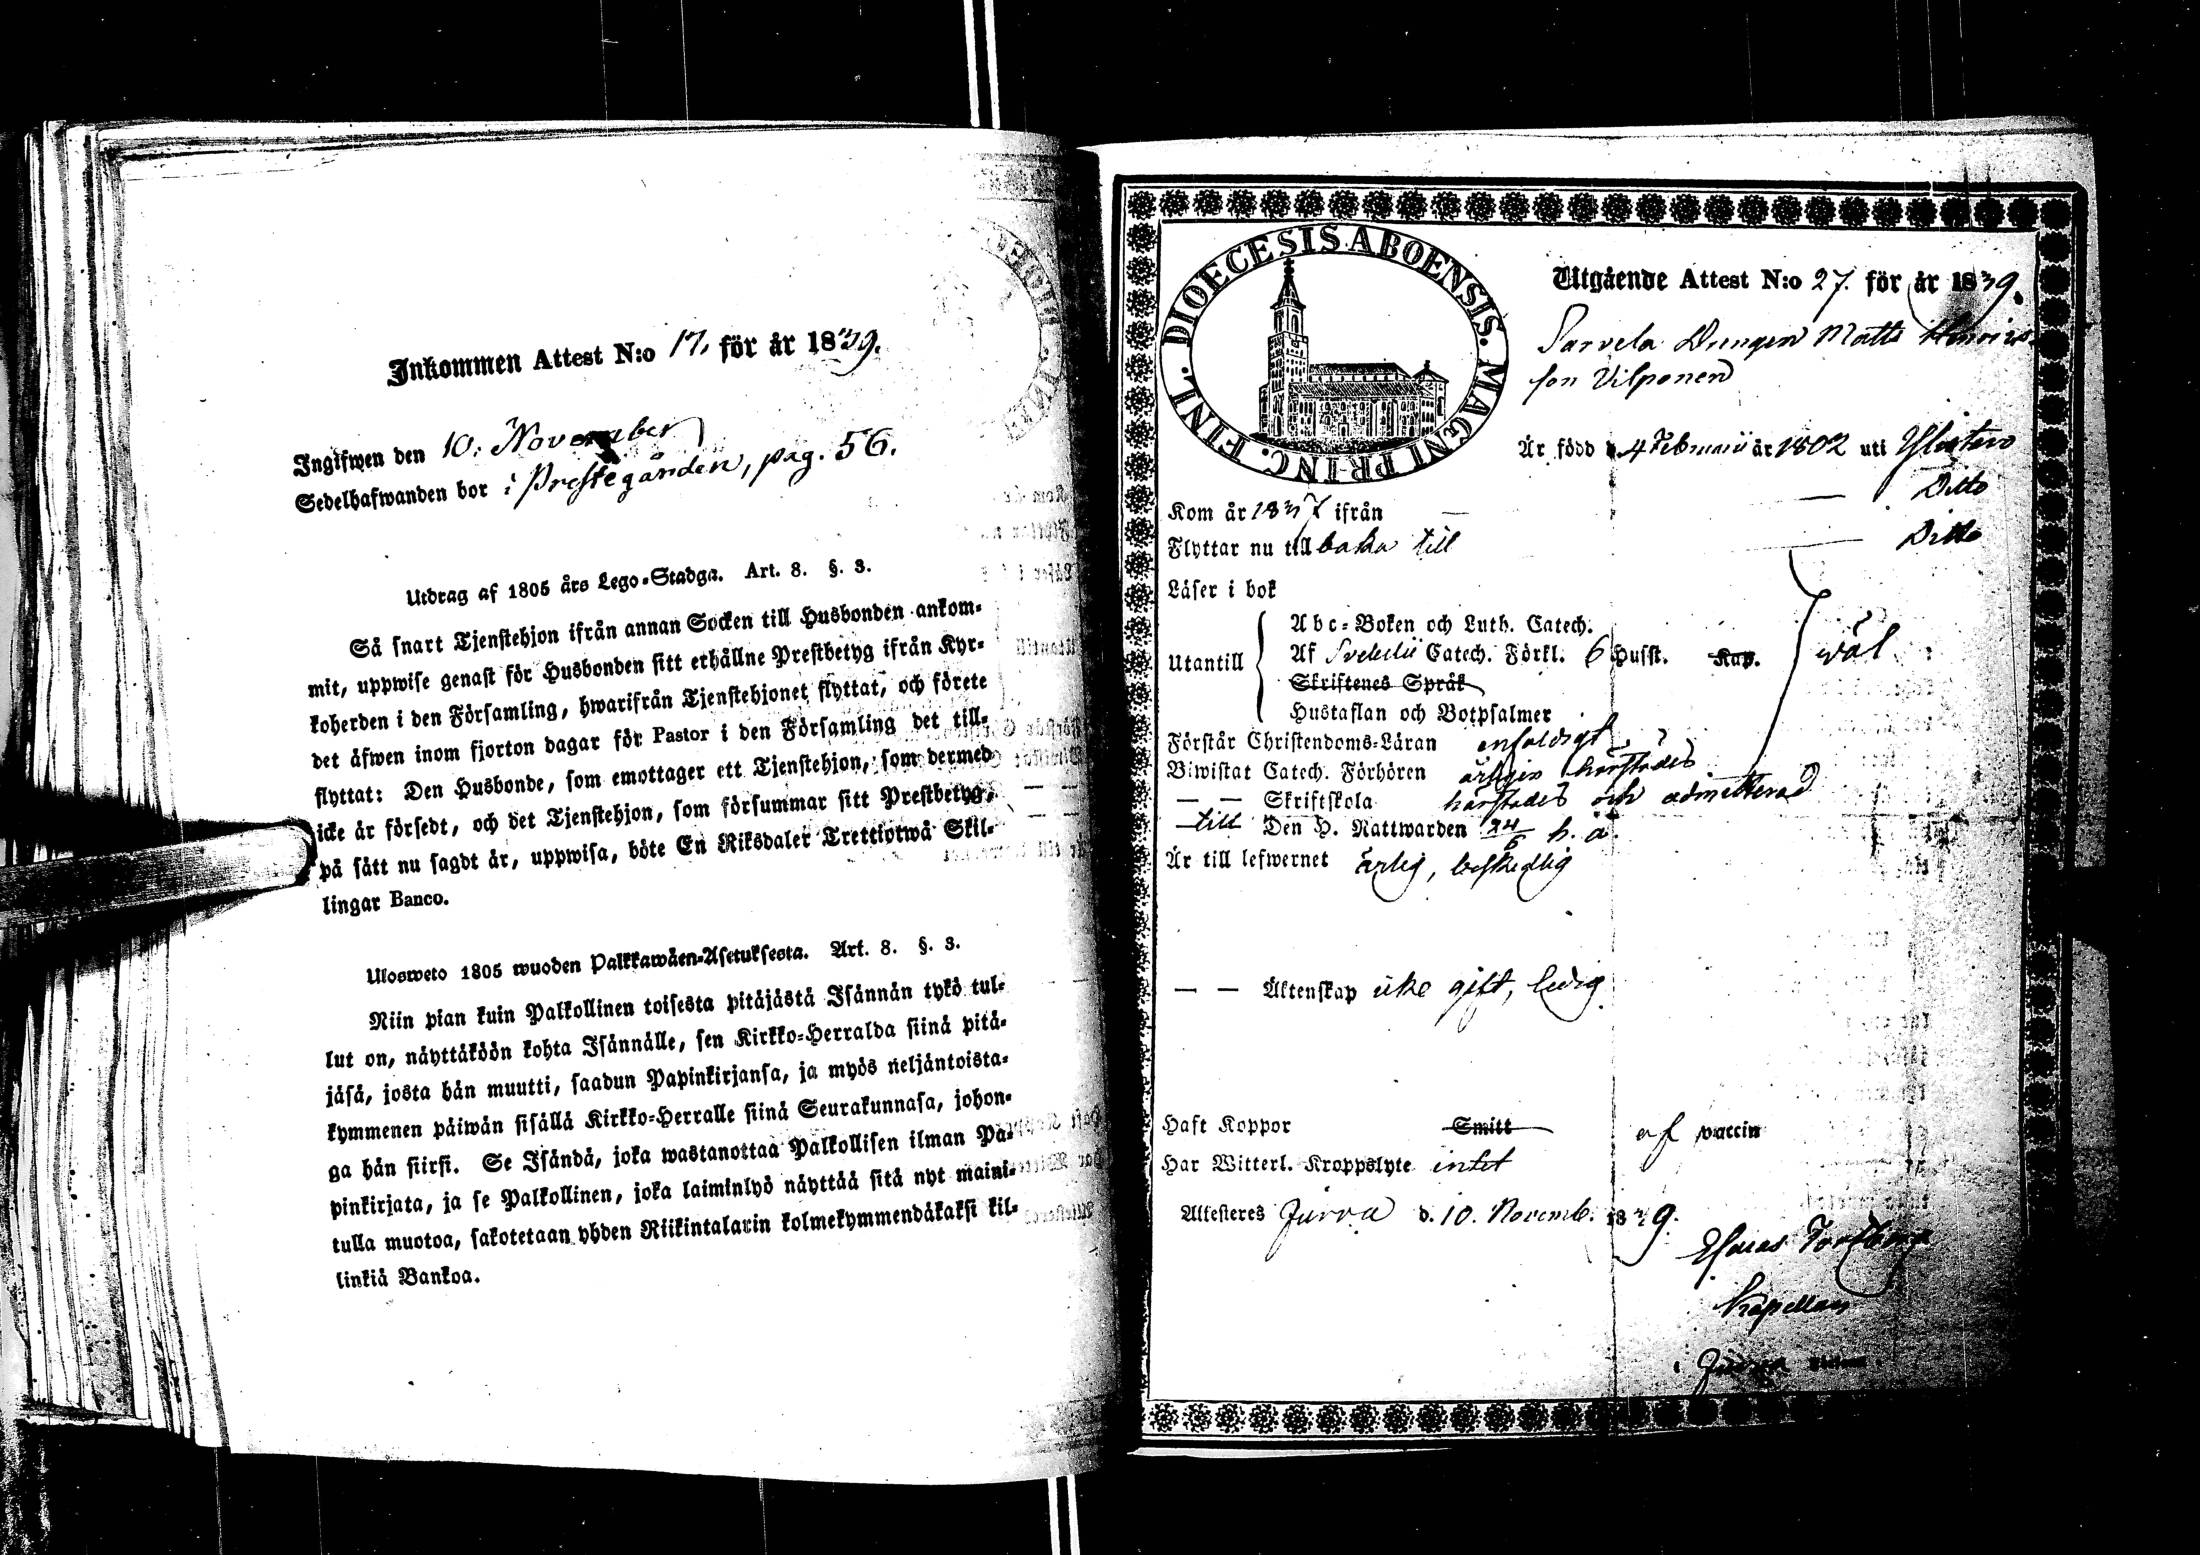 Inkommen Attest N:o 17. för år 1839.
Ingifwen den 10. November
Sedelhafwanden bor i Prestegården, pag. 56.
Utdrag af 1805 års Lego-Stadga. Art. 8. §. 3.
Så snart Tjenstehjon ifrån annan Socken till Husbonden ankom-
mit, uppwise genast för Husbonden sitt erhållne Prestbetyg ifrån Kyr-
koherden i den Församling, hwarifrån Tjenstehjonet flyttat, och förete
det äfwen inom fjorton dagar för Pastor i den Församling det till-
flyttat: Den Husbonde, som emottager ett Tjenstehjon, som dermed
icke är försedt, och det Tjenstehjon, som försummar sitt Prestbetyg,
på sätt nu sagdt är, uppwisa, böte En Riksdaler Trettiotwå Skil-
lingar Banco.
Ulosweto 1805 wuoden Palkkawäen-Asetuksesta. Art. 8. §. 3.
Niin pian kuin Palkollinen toisesta pitäjästä Isännän tykö tul-
lut on, näyttäköön kohta Isännälle, sen Kirkko-Herralda siinä pitä-
jäsä, josta hän muutti, saadun Papinkirjansa, ja myös neljäntoista-
kymmenen päiwän sisällä Kirkko-Herralle siinä Seurakunnasa, johon-
ga hän siirsi. Se Isändä, joka wastanottaa Palkollisen ilman Pa-
pinkirjata, ja se Palkollinen, joka laiminlyö näyttää sitä nyt maini-
tulla muotoa, sakotetaan yhden Riikintalarin kolmekymmendäkaksi kil-
linkiä Bankoa.
DIOECESIS ABOENSIS. MAGNI PRINC. FINL.
Utgående Attest N:o 27. för år 1839.
Sarvela Drengen Matts Henrics-
son Vilponen
Är född d. 4 Februarii år 1802 uti
Kom år 1837 ifrån — Ditto
Flyttar nu tillbaka till Ditto
Läser i bok
Utantill
Abc-Boken och Luth. Catech.
Af Svebelii Catech. Förkl. 6 Husst. Kap. wäl
Skriftenes Språk
Hustaflan och Botpsalmer
Förstår Christendoms-Läran enfaldigt
Biwistat Catech. Förhören årligen härstädes
— — Skriftskola härstädes och admitterad
— till Den H. Nattwarden 24/6 h. a.
Är till lefwernet ärlig, beskedlig
— — Äktenskap icke gift, ledig
Haft Koppor Smitt af vaccin
Har Witterl. Kroppslyte intet
Attesteres Jurva d. 10. Novemb. 1839.
Esaias
Kapellan
i Jurva